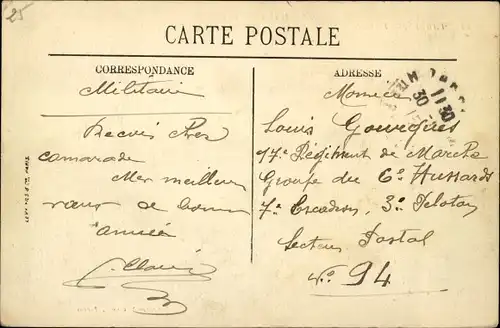 25
CARTE POSTALE
CORRESPONDANCE
Militaire
Recois cher
camarade
Mes meilleurs
vœux de bonne
année
ADRESSE
Monsieur
Louis
17e Régiment de Marche
Groupe du 6e Hussards
7e Escadron, 3e Peloton
Secteur Postal
No 94
11 30
30